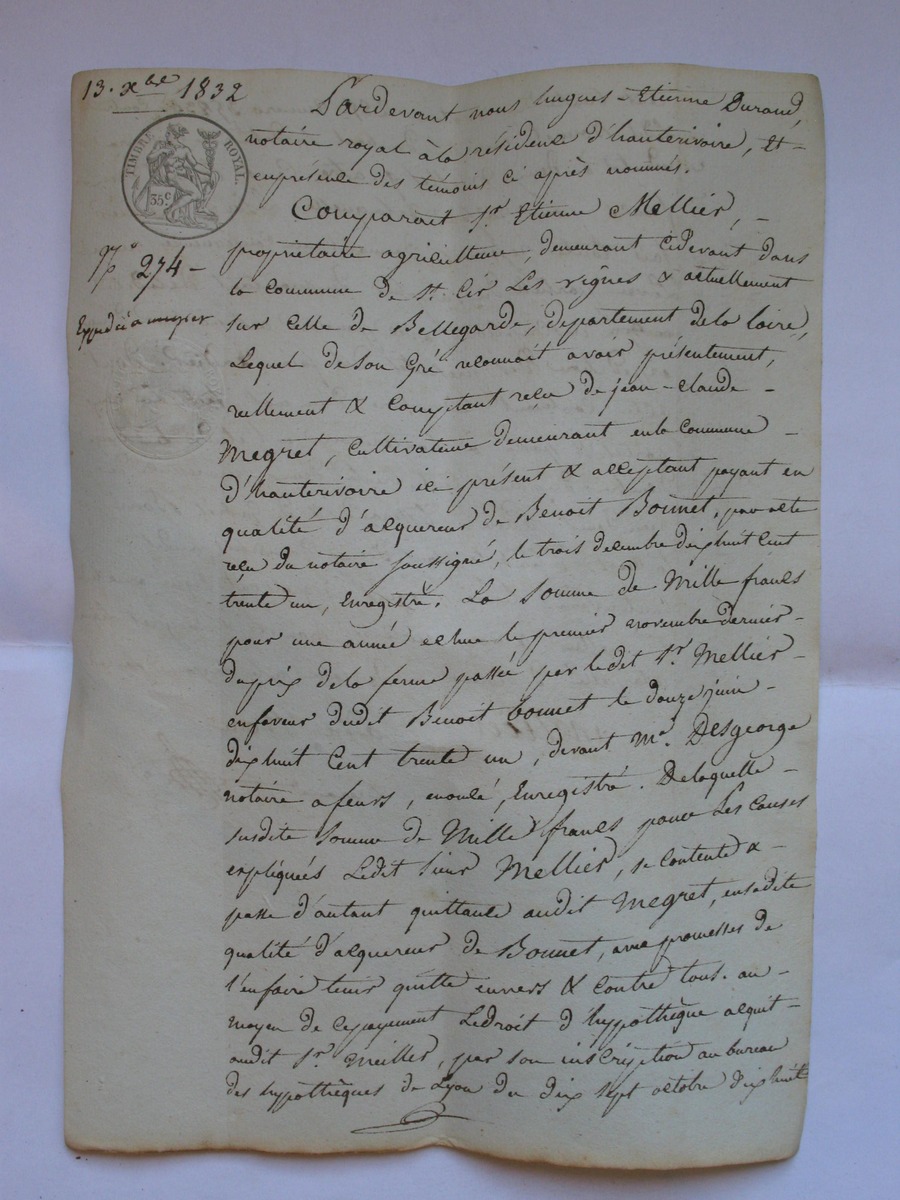 13. xbre 1832
TIMBRE ROYAL.
35 c
No 274 –
Expédié à
Pardevant nous hugues - Etienne Durand,
notaire royal à la résidence d'hauterivoire, Et –
enprésence des témoins ci après nommés.
Comparait Sr. Etienne Mellier, –
propriétaire agriculteur, demeurant cidevant dans
la Commune de St. Cir Les vignes & actuellement
sur Celle de Bellegarde, département dela loire,
Lequel de Son Gré reconnait avoir présentement,
réellement & Comptant reçu de jean-claude –
Megret, Cultivateur demeurant enla Commune –
d'hauterivoire ici présent & acceptant payant en
qualité d'acquereur de Benoit Bonnet, par acte
reçu du notaire Soussigné, le trois décembre dixhuit Cent
trente un, Enregistré. La Somme de Mille francs
pour une année echue le premier novembre dernier –
duprix dela ferme passée par ledit Sr. Mellier –
enfaveur dudit Benoit bonnet le douze juin –
dixhuit Cent trente un, devant Me. Desgeorge
notaire a feurs, Enregistré. Delaquelle –
susdite Somme de Mille francs pour Les Causes
expliquées Ledit sieur Mellier, se Contente & –
passe d'autant quittance audit Megret, ensadite
qualité d'acquereur de Bonnet, avec promesses de
l'enfaire tenir quitte envers & Contre tous. au –
moyen de cepayement Ledroit d'hypothèque acquit –
audit Sr. Meiller, par son inscription au bureau
des hypothèques de Lyon du dix Sept octobre dixhuit